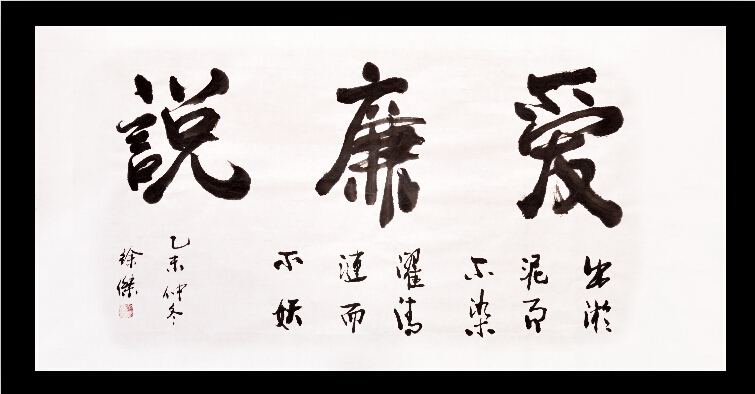 爱廉說
出淤
泥而
不染
濯清
漣而
不妖
乙未仲冬
徐傑